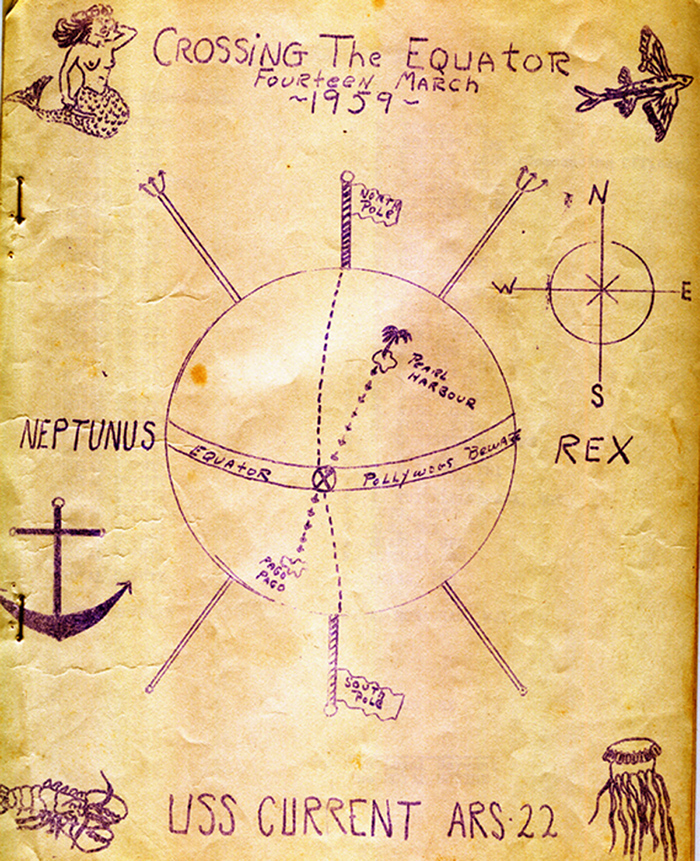 CROSSING THE EQUATOR
FOURTEEN MARCH
~1959~
NORTH
POLE
N
W
E
S
PEARL
HARBOUR
NEPTUNUS
REX
EQUATOR
POLLYWOGS BEWARE
PAGO
PAGO
SOUTH
POLE
USS CURRENT ARS-22